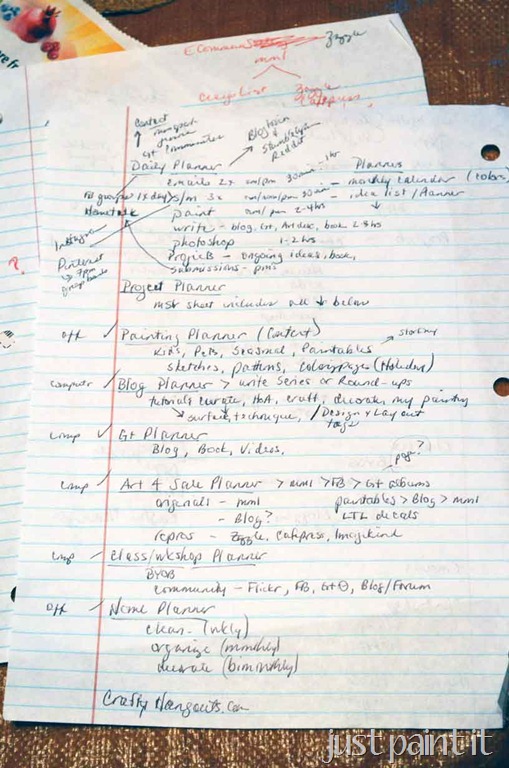 Ecommerce
Zazzle
mml
Craigslist
Zazzle
Cafepress
Contact
Blog Fusion
&
StumbleUpon
Reddit
G+ Communities
Daily Planner
Planner
Emails 2x am/pm 30min - 1hr
monthly calendar (colors)
FB groups 1x day
s/m 3x am/nn/pm 30min
idea list / Planner
Hometalk
paint am/pm 2-4hrs
write - blog, G+, Art doc, book 2-8hrs
Instagram
photoshop 1-2hrs
Pinterest
7pm
group boards
Projects - ongoing ideas, book,
Submissions - pins
?
Project Planner
mstr sheet includes all ↓ below
off ✓ Painting Planner (Content)
Kids, Pets, Seasonal, Paintables
sketches, patterns, colorpages (Holidays)
computer ✓ Blog Planner > write Series or Round-ups
tutorials curate, HoA, craft, decorate, my painting
surface, technique, / Design & Layout
tags
comp ✓ G+ Planner
Blog, Book, Videos,
page?
comp ✓ Art 4 Sale Planner > mml > FB > G+ albums
originals - mml
paintables > Blog > mml
- Blog?
LTL decals
repros - Zazzle, Cafepress, Imagekind
comp ✓ Class/Wkshop Planner
BYOB
community - Flickr, FB, G+, Blog/Forum
off ✓ Home Planner
clean - (wkly)
organize (monthly)
decorate (bimonthly)
CraftyHangouts.com
just paint it